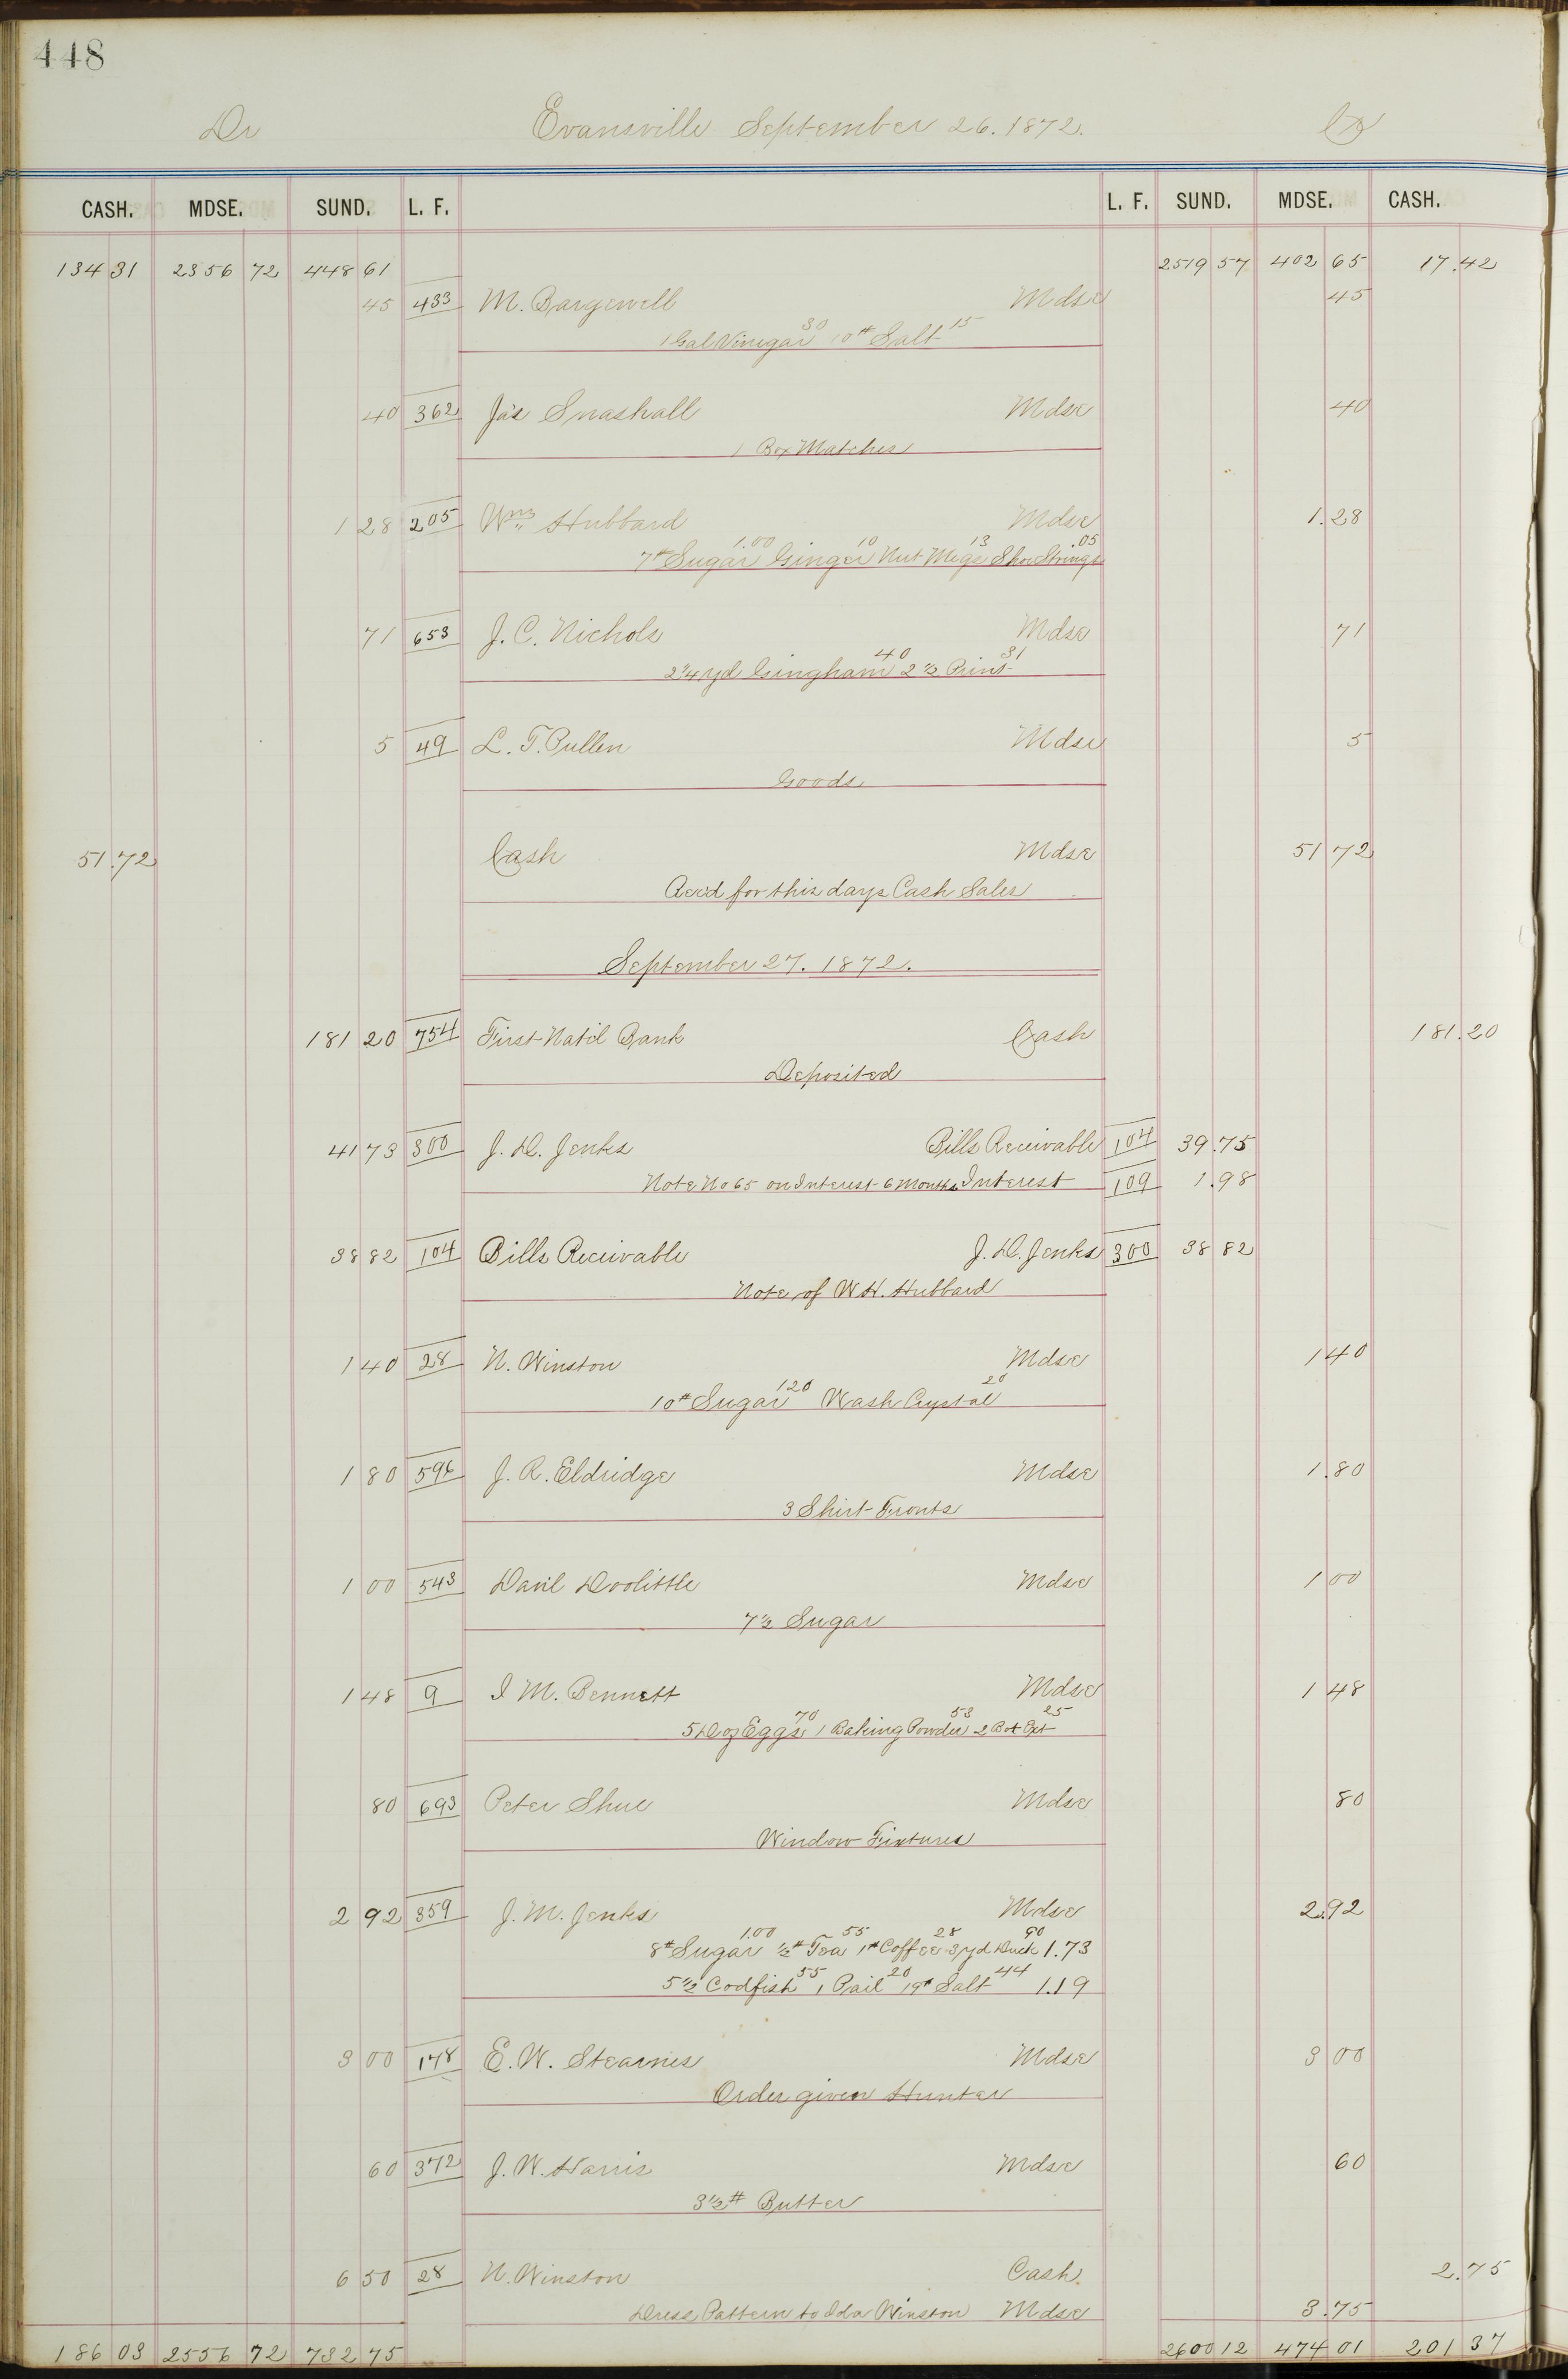 448
Dr Evansville September 26. 1872. Cr
CASH. MDSE. SUND. L. F. L. F. SUND. MDSE. CASH.
134 31 2356 72 448 61 2519 57 402 65 17.42
45 433 M. Bargewell Mdse 45
1 Gal Vinegar 30 10# Salt 15
40 362 Jas Snashall Mdse 40
1 Box Matches
1 28 205 Wm Hubbard Mdse 1.28
7# Sugar 1.00 Ginger 10 Nut Megs 13 Shoe Strings .05
71 653 J. C. Nichols Mdse 71
2 1/4 yd Gingham 40 2 1/2 Print 31
5 49 L. T. Pullen Mdse 5
Goods
51.72 Cash Mdse 51 72
Rec'd for this days Cash Sales
September 27. 1872.
181 20 754 First Nat'l Bank Cash 181.20
Deposited
41 73 300 J. D. Jenks Bills Receivable 104 39.75
Note No 65 on Interest 6 Months Interest 109 1.98
38 82 104 Bills Receivable J. D. Jenks 300 38 82
Note of W H. Hubbard
1 40 28 N. Winston Mdse 1 40
10# Sugar 120 Wash Crystal 20
1 80 596 J. R. Eldridge Mdse 1.80
3 Shirt Fronts
1 00 543 Danl Doolittle Mdse 1 00
7 1/2 Sugar
1 48 9 I M. Bennett Mdse 1 48
5 Doz Eggs 70 1 Baking Powder 53 2 Bot Ext 25
80 693 Peter Shue Mdse 80
Window Fixtures
2 92 359 J. M. Jenks Mdse 2.92
8# Sugar 1.00 1/2# Tea 55 1# Coffee 28 3 yd Duck 90 1.73
5 1/2 Codfish 55 1 Pail 20 19# Salt 44 1.19
3 00 178 E. W. Stearnes Mdse 3 00
Order given Hunter
60 372 J. W. Harris Mdse 60
3 1/2# Butter
6 50 28 N. Winston Cash 2.75
Dress Pattern to Ida Winston Mdse 3.75
186 03 2556 72 732 75 2600 12 474 01 201 37